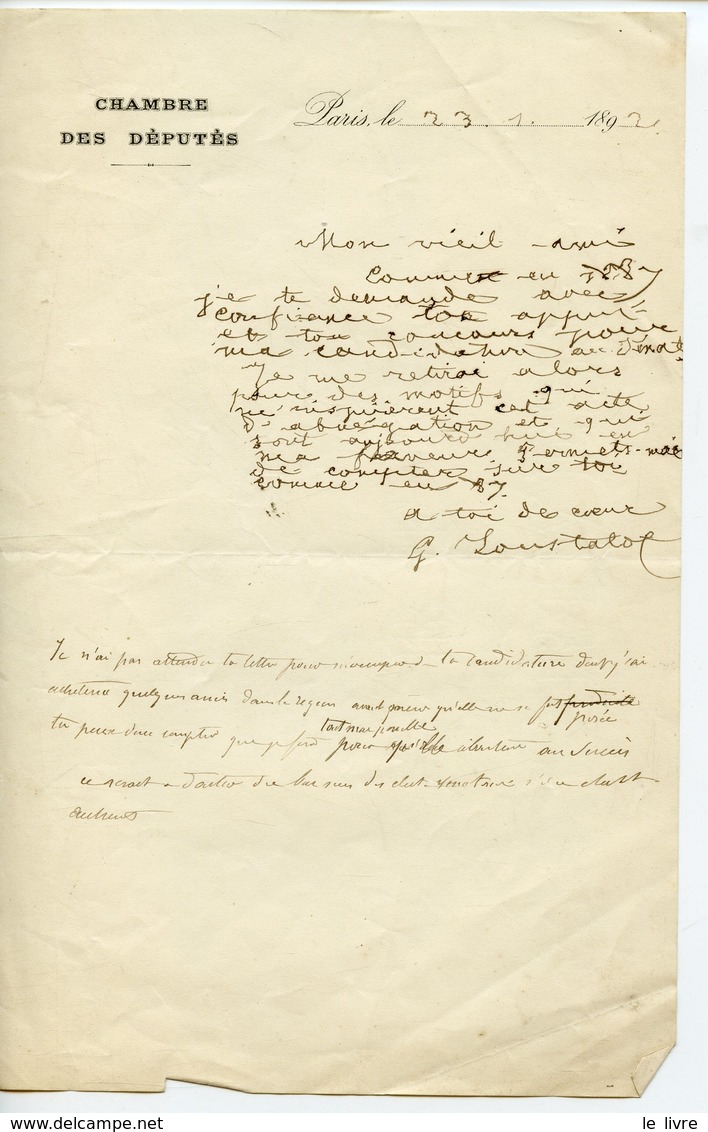 CHAMBRE
DES DÉPUTÉS
Paris, le 23. 1. 1892.
Mon vieil ami
Comme en 1887
je te demande avec
confiance ton appui
et ton concours pour
ma candidature au Sénat
Je me retirai alors
pour des motifs qui
m'inspirèrent cet acte
d'abnégation et qui
sont aujourd'hui en
ma faveur Permets-moi
de compter sur toi
comme en 87.
A toi de cœur
G. Loustalot
Je n'ai pas attendu ta lettre pour ta candidature dont j'ai
quelques amis dans la région avant même qu'elle ne se fut produite
posée
tout mon possible
tu peux donc compter que je ferai pour qu'elle au Succès
ce serait à douter du bon sens des
autrement
le livre